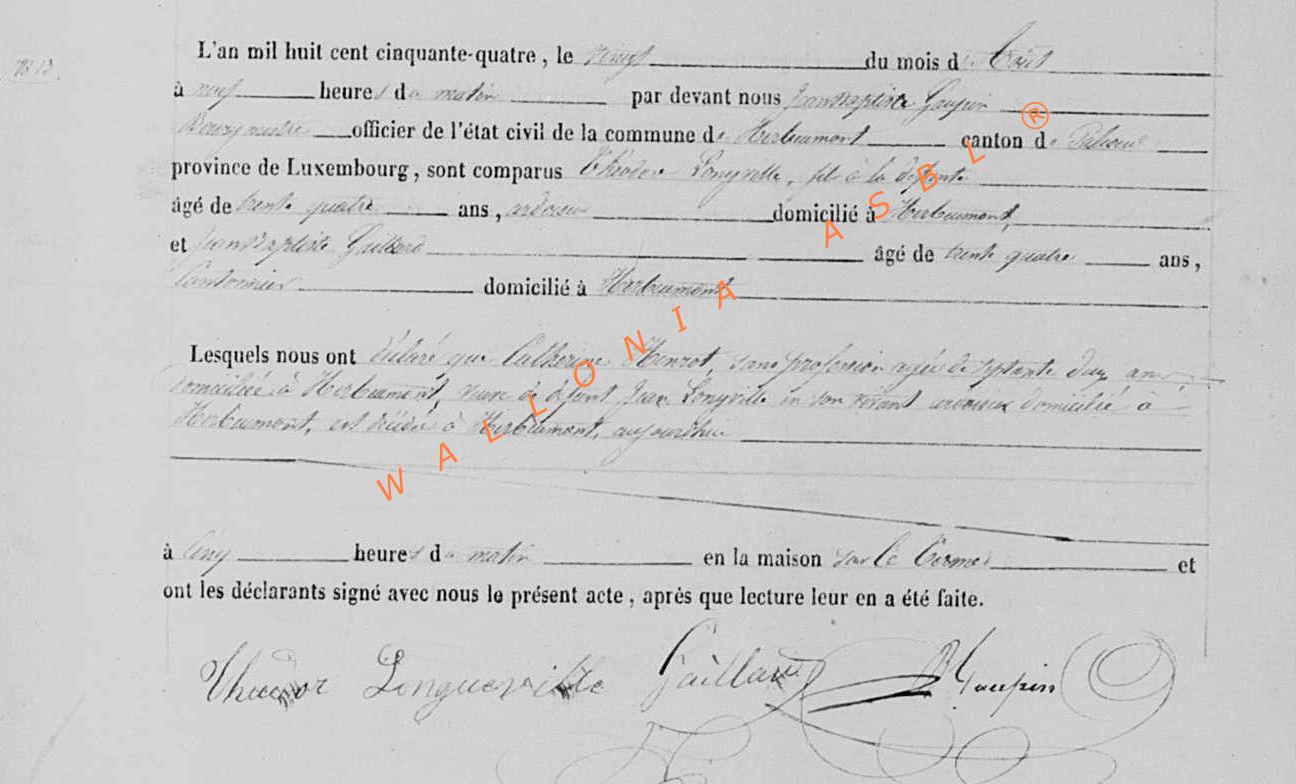 N° 13.
L'an mil huit cent cinquante-quatre, le vingt du mois d'Août
à neuf heures du matin par devant nous Jean Baptiste Gaupin
Bourgmestre officier de l'état civil de la commune de Herbeumont canton de Paliseul
province de Luxembourg, sont comparus Théodor Longville, fils à la défunte
âgé de trente quatre ans, ardoisier domicilié à Herbeumont,
et Jean Baptiste Gaillard âgé de trente quatre ans,
Cantonnier domicilié à Herbeumont
Lesquels nous ont déclaré que Catherine Henrot, sans profession agée de septante deux ans
domiciliée à Herbeumont, veuve de défunt Jean Longville en son vivant ardoisier domicilié à
Herbeumont, est décédée à Herbeumont, aujourd'hui
à cinq heures du matin en la maison sur le Terme et
ont les déclarants signé avec nous le présent acte, après que lecture leur en a été faite.
Theodor Longueville Gaillard Gaupin
WALLONIA ASBL ®